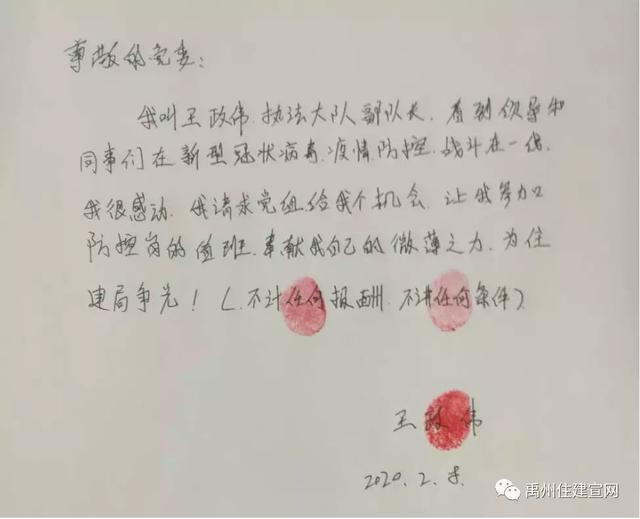 尊敬的党委：
我叫王政伟.执法大队副队长.看到领导和
同事们在新型冠状病毒.疫情.防控.战斗在一线.
我很感动.我请求党组.给我个机会.让我参加
防控岗的值班.奉献我自己的微薄之力.为住
建局争光！（.不计任何报酬.不讲任何条件）
王政伟
2020.2.
禹州住建宣网